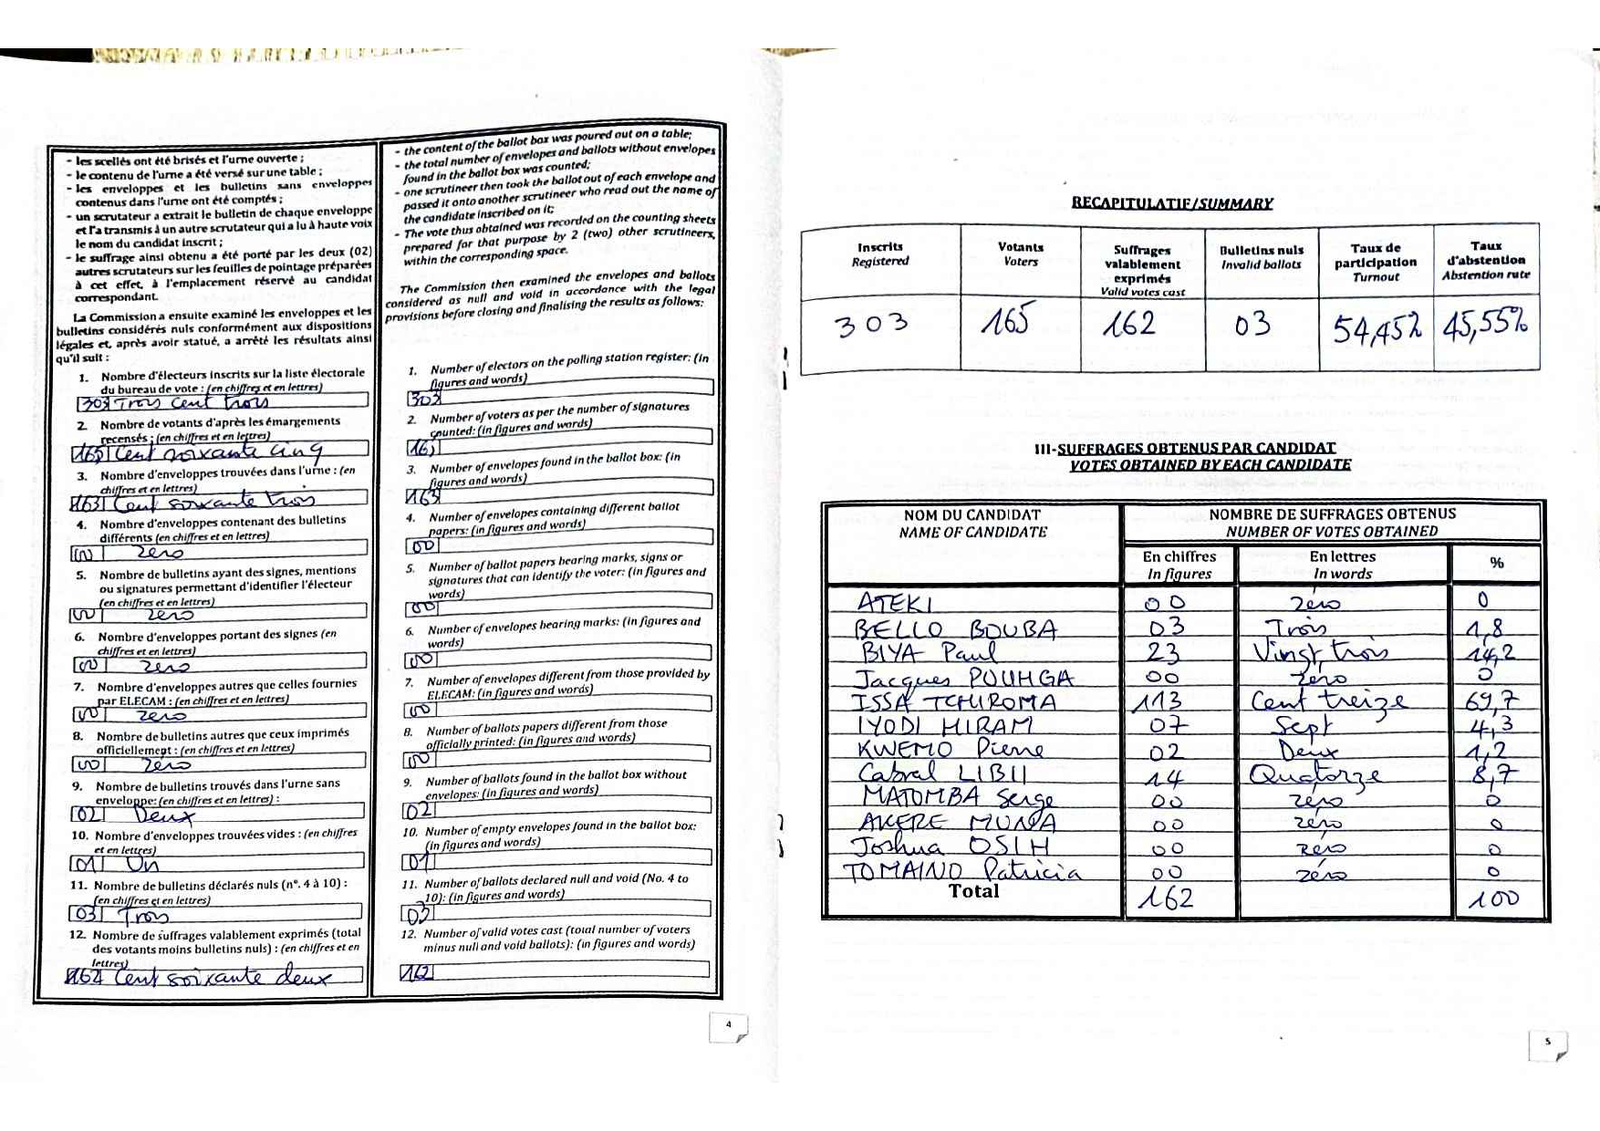 - les scellés ont été brisés et l'urne ouverte ;
- le contenu de l'urne a été versé sur une table ;
- les enveloppes et les bulletins sans enveloppes
contenus dans l'urne ont été comptés ;
- un scrutateur a extrait le bulletin de chaque enveloppe
et l'a transmis à un autre scrutateur qui a lu à haute voix
le nom du candidat inscrit ;
- le suffrage ainsi obtenu a été porté par les deux (02)
autres scrutateurs sur les feuilles de pointage préparées
à cet effet, à l'emplacement réservé au candidat
correspondant.
La Commission a ensuite examiné les enveloppes et les
bulletins considérés nuls conformément aux dispositions
légales et, après avoir statué, a arrêté les résultats ainsi
qu'il suit :
1. Nombre d'électeurs inscrits sur la liste électorale
du bureau de vote : (en chiffres et en lettres)
303 Trois Cent trois
2. Nombre de votants d'après les émargements
recensés : (en chiffres et en lettres)
165 Cent soixante cinq
3. Nombre d'enveloppes trouvées dans l'urne : (en
chiffres et en lettres)
163 Cent soixante trois
4. Nombre d'enveloppes contenant des bulletins
différents (en chiffres et en lettres)
00 zero
5. Nombre de bulletins ayant des signes, mentions
ou signatures permettant d'identifier l'électeur
(en chiffres et en lettres)
00 zero
6. Nombre d'enveloppes portant des signes (en
chiffres et en lettres)
00 zero
7. Nombre d'enveloppes autres que celles fournies
par ELECAM : (en chiffres et en lettres)
00 zero
8. Nombre de bulletins autres que ceux imprimés
officiellement : (en chiffres et en lettres)
00 zero
9. Nombre de bulletins trouvés dans l'urne sans
enveloppe: (en chiffres et en lettres) :
02 Deux
10. Nombre d'enveloppes trouvées vides : (en chiffres
et en lettres)
01 Un
11. Nombre de bulletins déclarés nuls (n°. 4 à 10) :
(en chiffres et en lettres)
03 Trois
12. Nombre de suffrages valablement exprimés (total
des votants moins bulletins nuls) : (en chiffres et en
lettres)
162 Cent soixante deux
- the content of the ballot box was poured out on a table;
- the total number of envelopes and ballots without envelopes
found in the ballot box was counted;
- one scrutineer then took the ballot out of each envelope and
passed it onto another scrutineer who read out the name of
the candidate inscribed on it;
- The vote thus obtained was recorded on the counting sheets
prepared for that purpose by 2 (two) other scrutineers,
within the corresponding space.
The Commission then examined the envelopes and ballots
considered as null and void in accordance with the legal
provisions before closing and finalising the results as follows:
1. Number of electors on the polling station register: (in
figures and words)
303
2. Number of voters as per the number of signatures
counted: (in figures and words)
165
3. Number of envelopes found in the ballot box: (in
figures and words)
163
4. Number of envelopes containing different ballot
papers: (in figures and words)
00
5. Number of ballot papers bearing marks, signs or
signatures that can identify the voter: (in figures and
words)
00
6. Number of envelopes bearing marks: (in figures and
words)
00
7. Number of envelopes different from those provided by
ELECAM: (in figures and words)
00
8. Number of ballots papers different from those
officially printed: (in figures and words)
00
9. Number of ballots found in the ballot box without
envelopes: (in figures and words)
02
10. Number of empty envelopes found in the ballot box:
(in figures and words)
01
11. Number of ballots declared null and void (No. 4 to
10): (in figures and words)
03
12. Number of valid votes cast (total number of voters
minus null and void ballots): (in figures and words)
162
4
RECAPITULATIF/SUMMARY
Inscrits Votants Suffrages Bulletins nuls Taux de Taux
Registered Voters valablement Invalid ballots participation d'abstention
exprimés Turnout Abstention rate
Valid votes cast
303 165 162 03 54,45% 45,55%
III-SUFFRAGES OBTENUS PAR CANDIDAT
VOTES OBTAINED BY EACH CANDIDATE
NOM DU CANDIDAT NOMBRE DE SUFFRAGES OBTENUS
NAME OF CANDIDATE NUMBER OF VOTES OBTAINED
En chiffres En lettres %
In figures In words
ATEKI 00 zéro 0
BELLO BOUBA 03 Trois 1,8
BIYA Paul 23 Vingt trois 14,2
Jacques POUHGA 00 zéro 0
ISSA TCHIROMA 113 Cent treize 69,7
IYODI HIRAM 07 Sept 4,3
KWEMO Pierre 02 Deux 1,2
Cabral LIBII 14 Quatorze 8,7
MATOMBA Serge 00 zéro 0
AKERE MUNA 00 zéro 0
Joshua OSIH 00 zéro 0
TOMAINO Patricia 00 zéro 0
Total 162 100
5